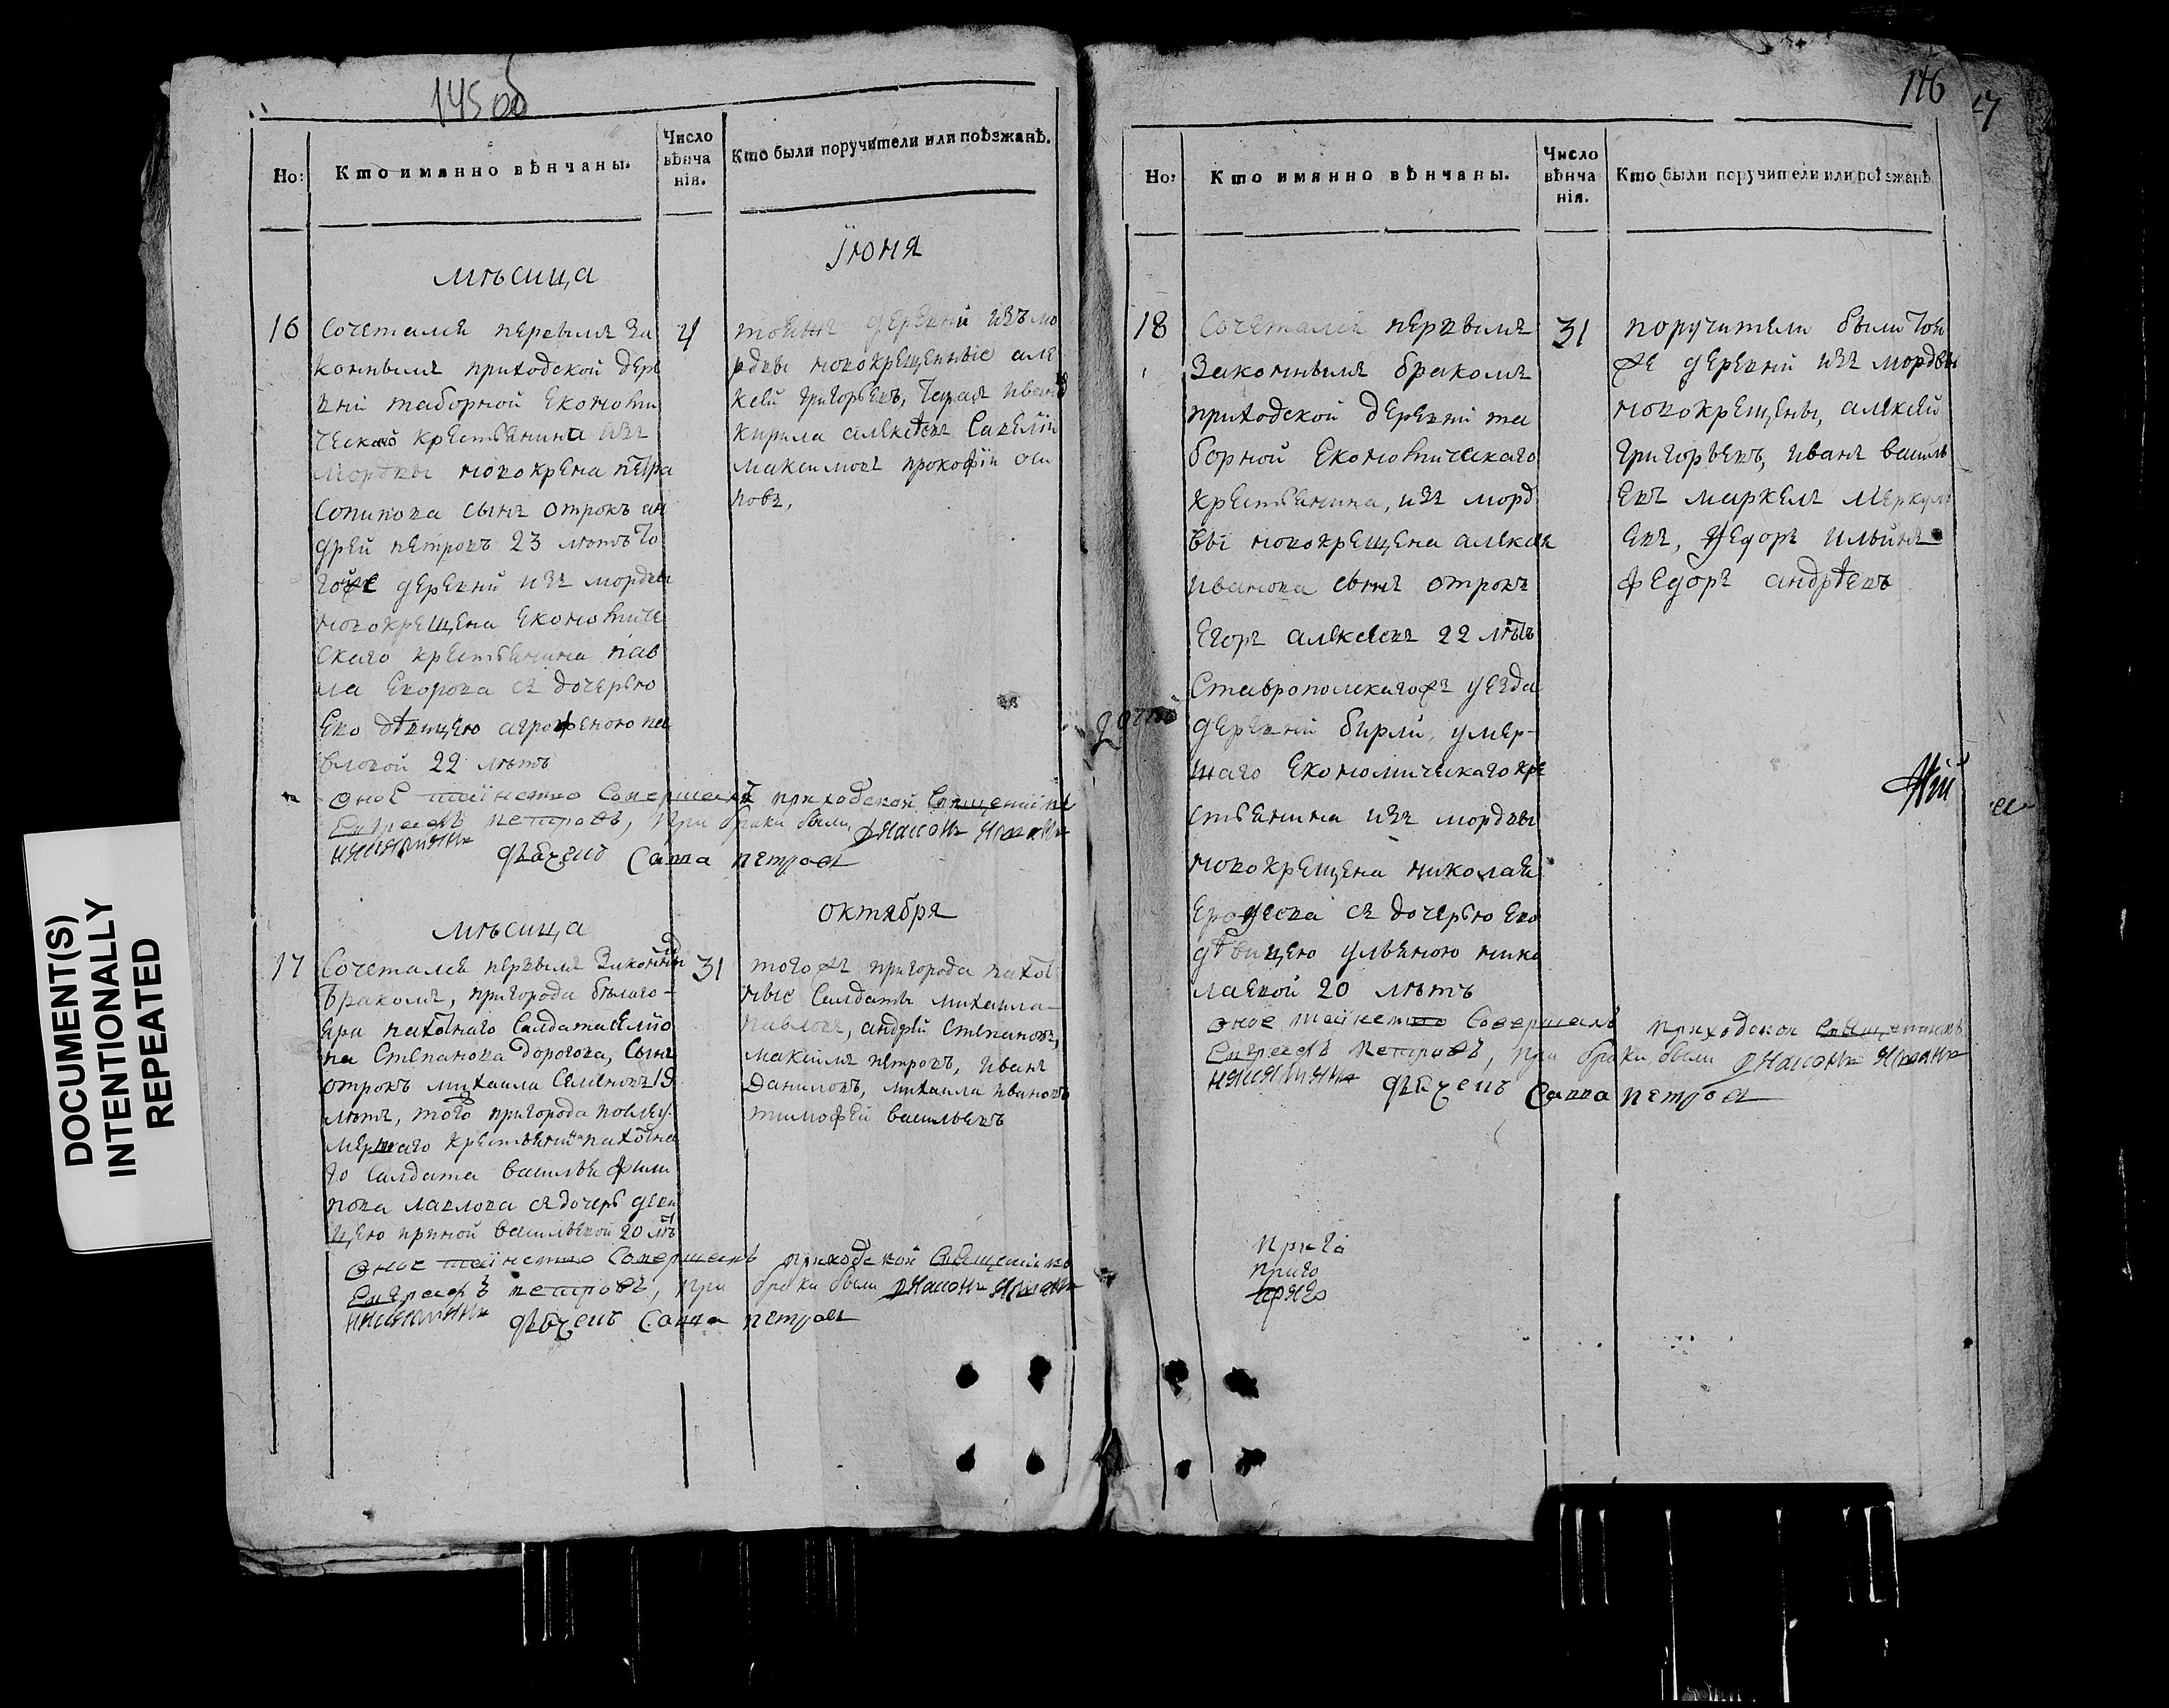 145 об
Но:
Кто имянно вѣнчаны.
Число
вѣнча
нія.
Кто были поручители или поѣзжанѣ.
мѣсица
Їюня
16
Сочетался первымъ за
коннымъ приходской дере
вни таборной Економи
ческаго крестьянина изъ
мордвы новокрена петра
Сопипова сынъ отрокъ ан
дрей петровъ 23 лѣтъ то
йже деревни изъ мордвы
новокрещена Економиче
скаго крестьянина пав
ла Егорова съ дочерью
Ево дѣвицею агрофеною па
вловой 22 лѣтъ
4
тояже деревни изъ мо
рдвы новокрещенные але
ксей григорьевъ, иван
кирила алексѣевъ Савелiй
максимовъ прокофiй оси
повъ,
оное таинство Совершалъ приходской Священникъ
петровъ, при браки были
Савва петровъ
мѣсица
октября
17
Сочетался первымъ законны
бракомъ, пригорода бѣлаго
яра пахотнаго Салдата
Степанова дорогова, Сынъ
отрокъ михаила Семеновъ 19
лѣтъ, того пригорода
мершаго крестьянина пахотна
го Салдата василья фили
пова павлова съ дочерь деви
цею ириной васильевой 20 лѣ
31
того же пригорода пахот
ные Салдаты михаила
павловъ, андрей степановъ,
максимъ петровъ, иванъ
даниловъ, михаила ивановъ
тимофей васильевъ
оное таинство Совершалъ приходской Священникъ
петровъ, при браки были
Савва петровъ
146
Но:
Кто имянно вѣнчаны.
Число
вѣнча
нія.
Кто были поручители или поѣзжанѣ
18
Сочетался первымъ
Законнымъ бракомъ
приходской деревни та
борной Економическаго
крестьянина, изъ морд
вы новокрещена алексея
иванова сынъ отрокъ
Егоръ алексеевъ 22 лѣтъ
Ставрополскагожъ уезда
деревни бирли, умер-
шаго Економическаго кре
стьянина изъ мордвы
новокрещена николая
Ерофеева съ дочерью Ево
дѣвицею ульяною нико
лаевой 20 лѣтъ
31
поручители были тоя
же деревни изъ мордвы
новокрещены, алексей
григорьевъ, иванъ василь
евъ маркелъ меркуль
евъ, федоръ ильинъ
федоръ андрѣевъ
оное таинство Совершалъ приходской Священникъ
петровъ, при браки были
Савва петровъ
приго
приго
DOCUMENT(S)
INTENTIONALLY
REPEATED